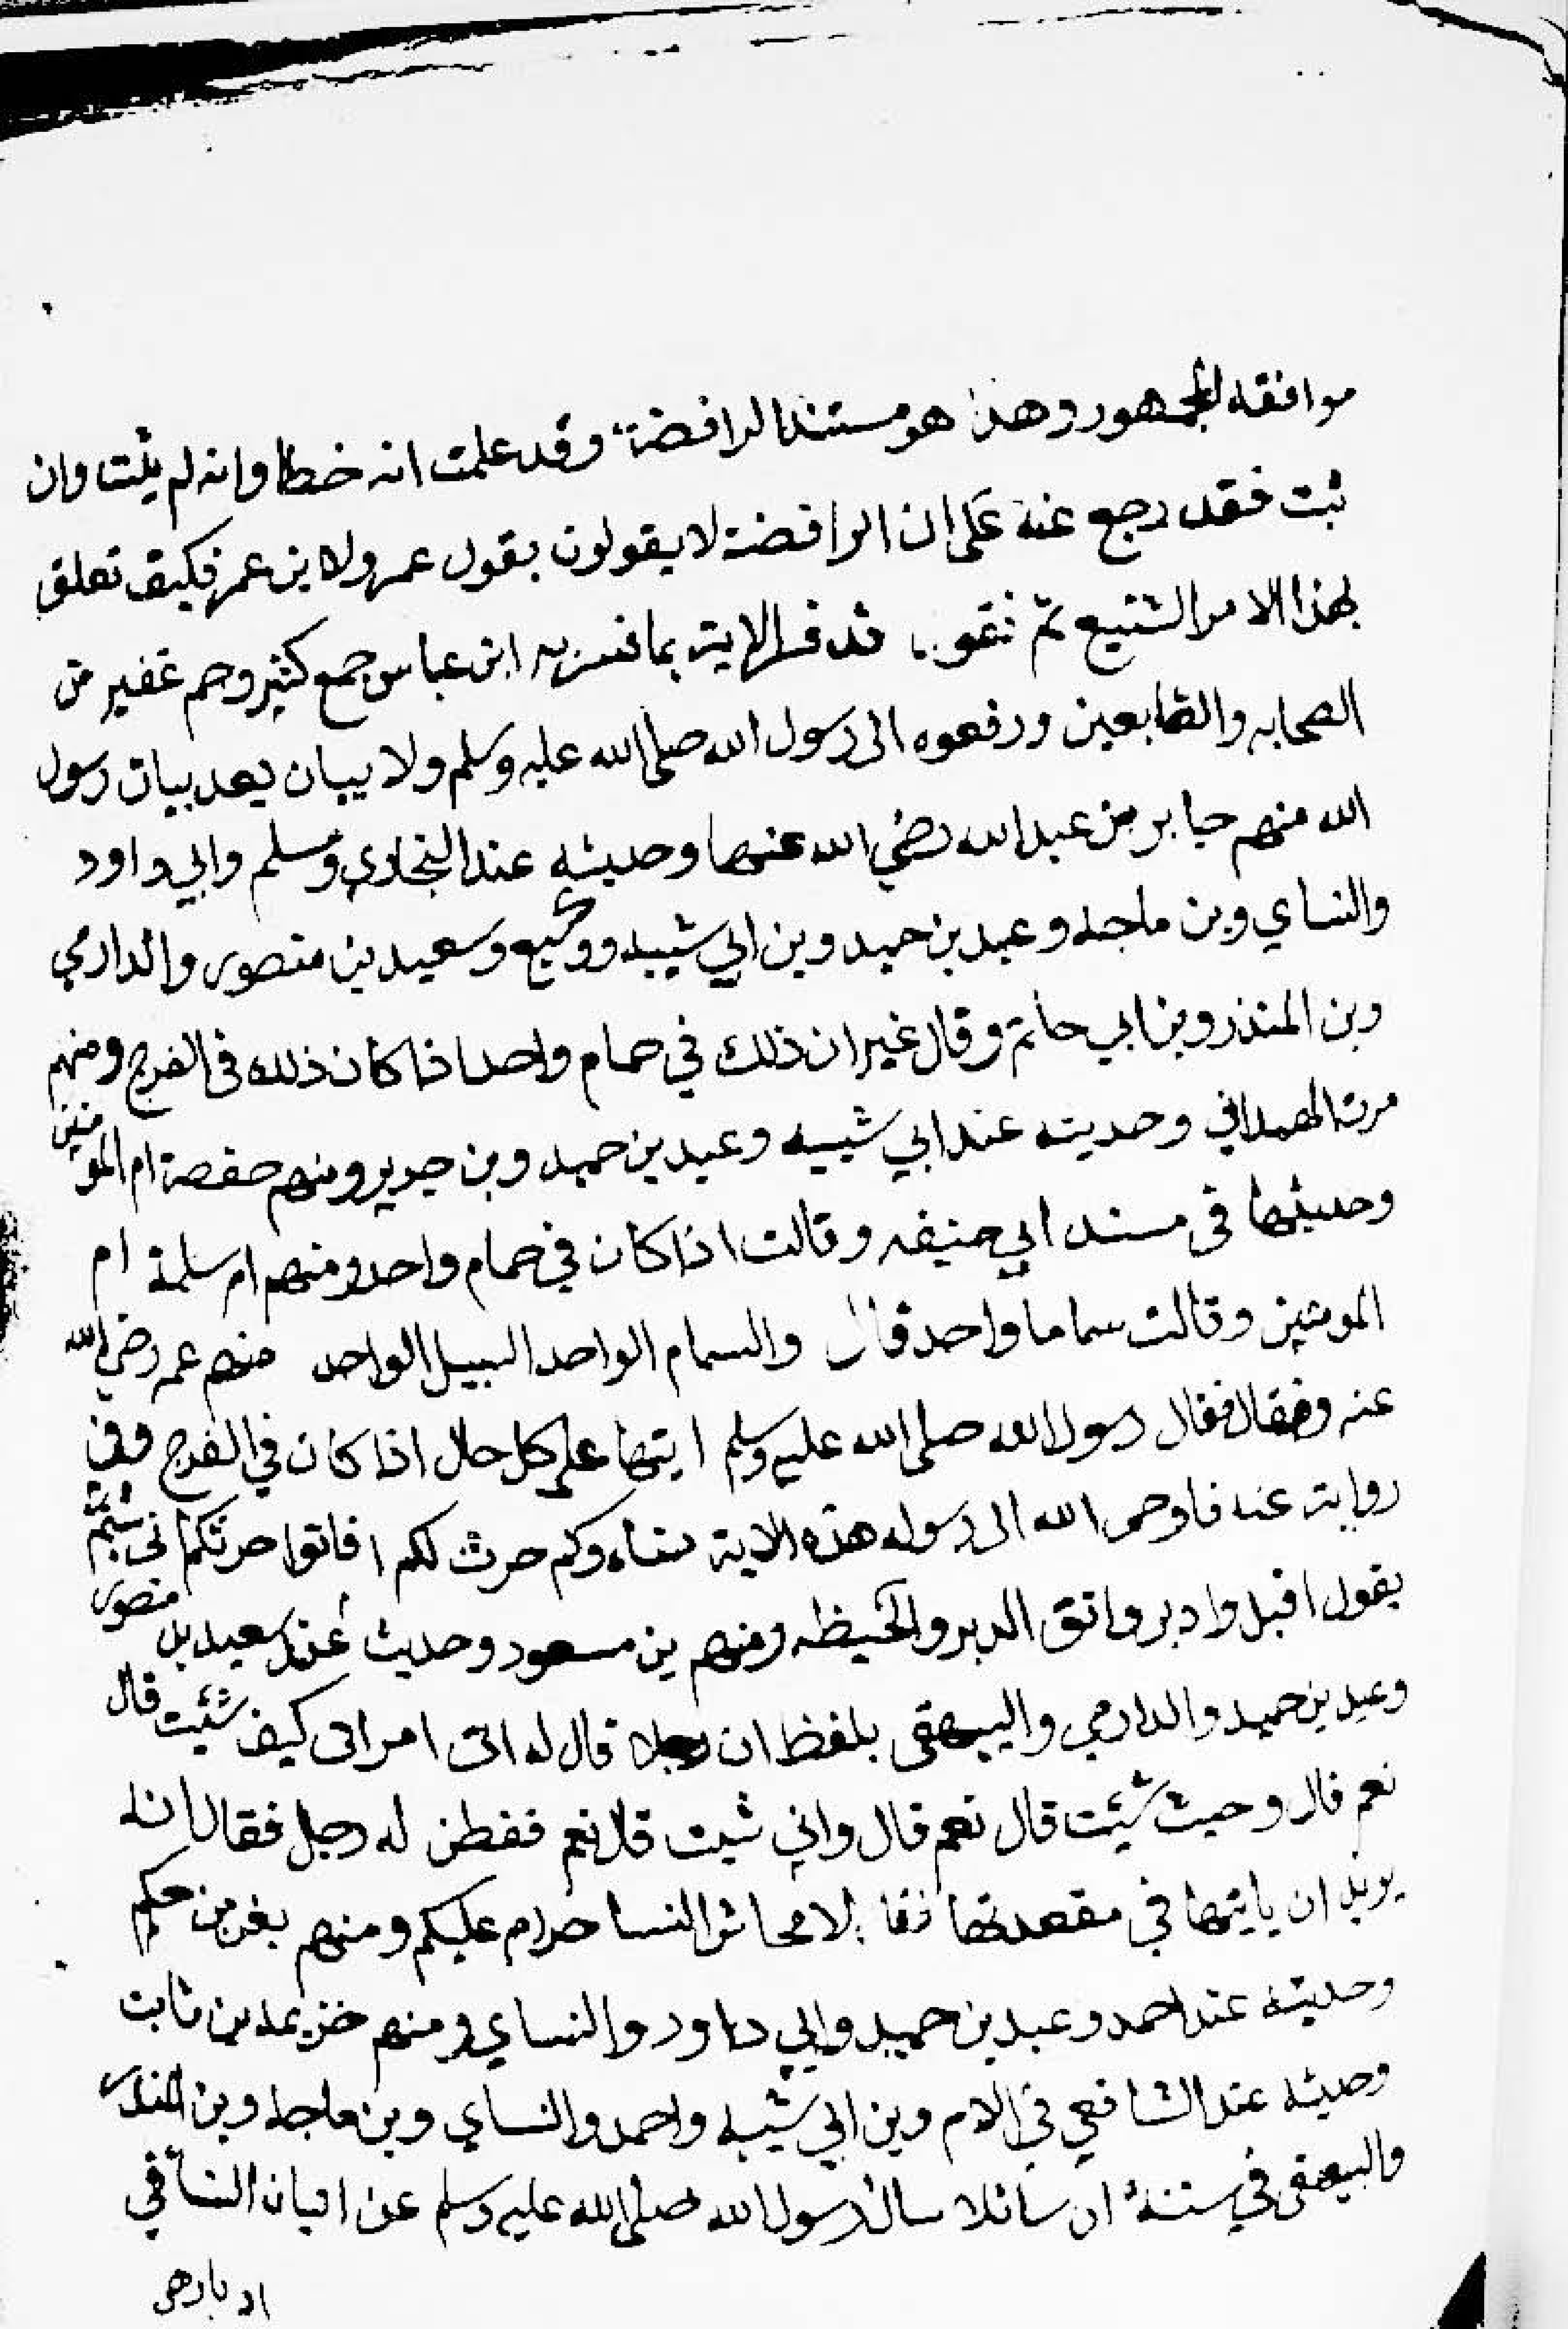 موافقه للجمهور وهذا هو مستند الرافضة وقد علمت انه خطا وانه لم يثبت وان
ثبت فقد رجع عنه على ان الرافضة لا يقولون بقول عمر ولا بن عمر فكيف تعلق
بهذا الامر الشنيع ثم نقول قد فسر الاية بما فسر به ابن عباس جمع كثير وجم غفير من
الصحابه والتابعين ورفعوه الى رسول الله صلى الله عليه وسلم ولا بيان بعد بيان رسول
الله منهم جابر بن عبد الله رضي الله عنهما وحديثه عند البخاري ومسلم وابي داود
والنساي وبن ماجه وعبد بن حميد وبن ابي شيبه ووكيع وسعيد بن منصور والدارمي
وبن المنذر وبن ابي حاتم وقال غير ان ذلك في صمام واحد اذا كان ذلك في الفرج ومنهم
مرة الهمداني وحديثه عند ابي شيبه وعبد بن حميد وبن جرير ومنهم حفصة ام المومنين
وحديثها في مسند ابي حنيفه وقالت اذا كان في صمام واحد ومنهم ام سلمة ام
المومنين وقالت سماما واحد قال والسمام الواحد السبيل الواحد منهم عمر رضي الله
عنه فقال رسول الله صلى الله عليه وسلم ايتها على كل حال اذا كان في الفرج وفي
رواية عنه فاوحى الله الى رسوله هذه الاية نساوكم حرث لكم فاتوا حرثكم انى شئتم
يقول اقبل وادبر واتق الدبر والحيظه ومنهم بن مسعود وحديث عند سعيد بن منصور
وعبد بن حميد والدارمي والبيهقي بلفظ ان رجلا قال له اتى امراتى كيف شئيت قال
نعم قال وحيث شئيت قال نعم قال واني شيت قال نعم ففطن له رجل فقال انه
يريد ان ياتيها في مقعدتها فقال لا محاش النسا حرام عليكم ومنهم بهز بن حكيم
وحديثه عند احمد وعبد بن حميد وابي داود والنساي ومنهم خزيمه بن ثابت
وحديثه عند الشافعي في الام وبن ابي شيبه واحمد والنساي وبن ماجه وبن المنذر
والبيهقي في سننه ان سائلا سال رسول الله صلى الله عليه وسلم عن اتيان النسا في
ادبارهن